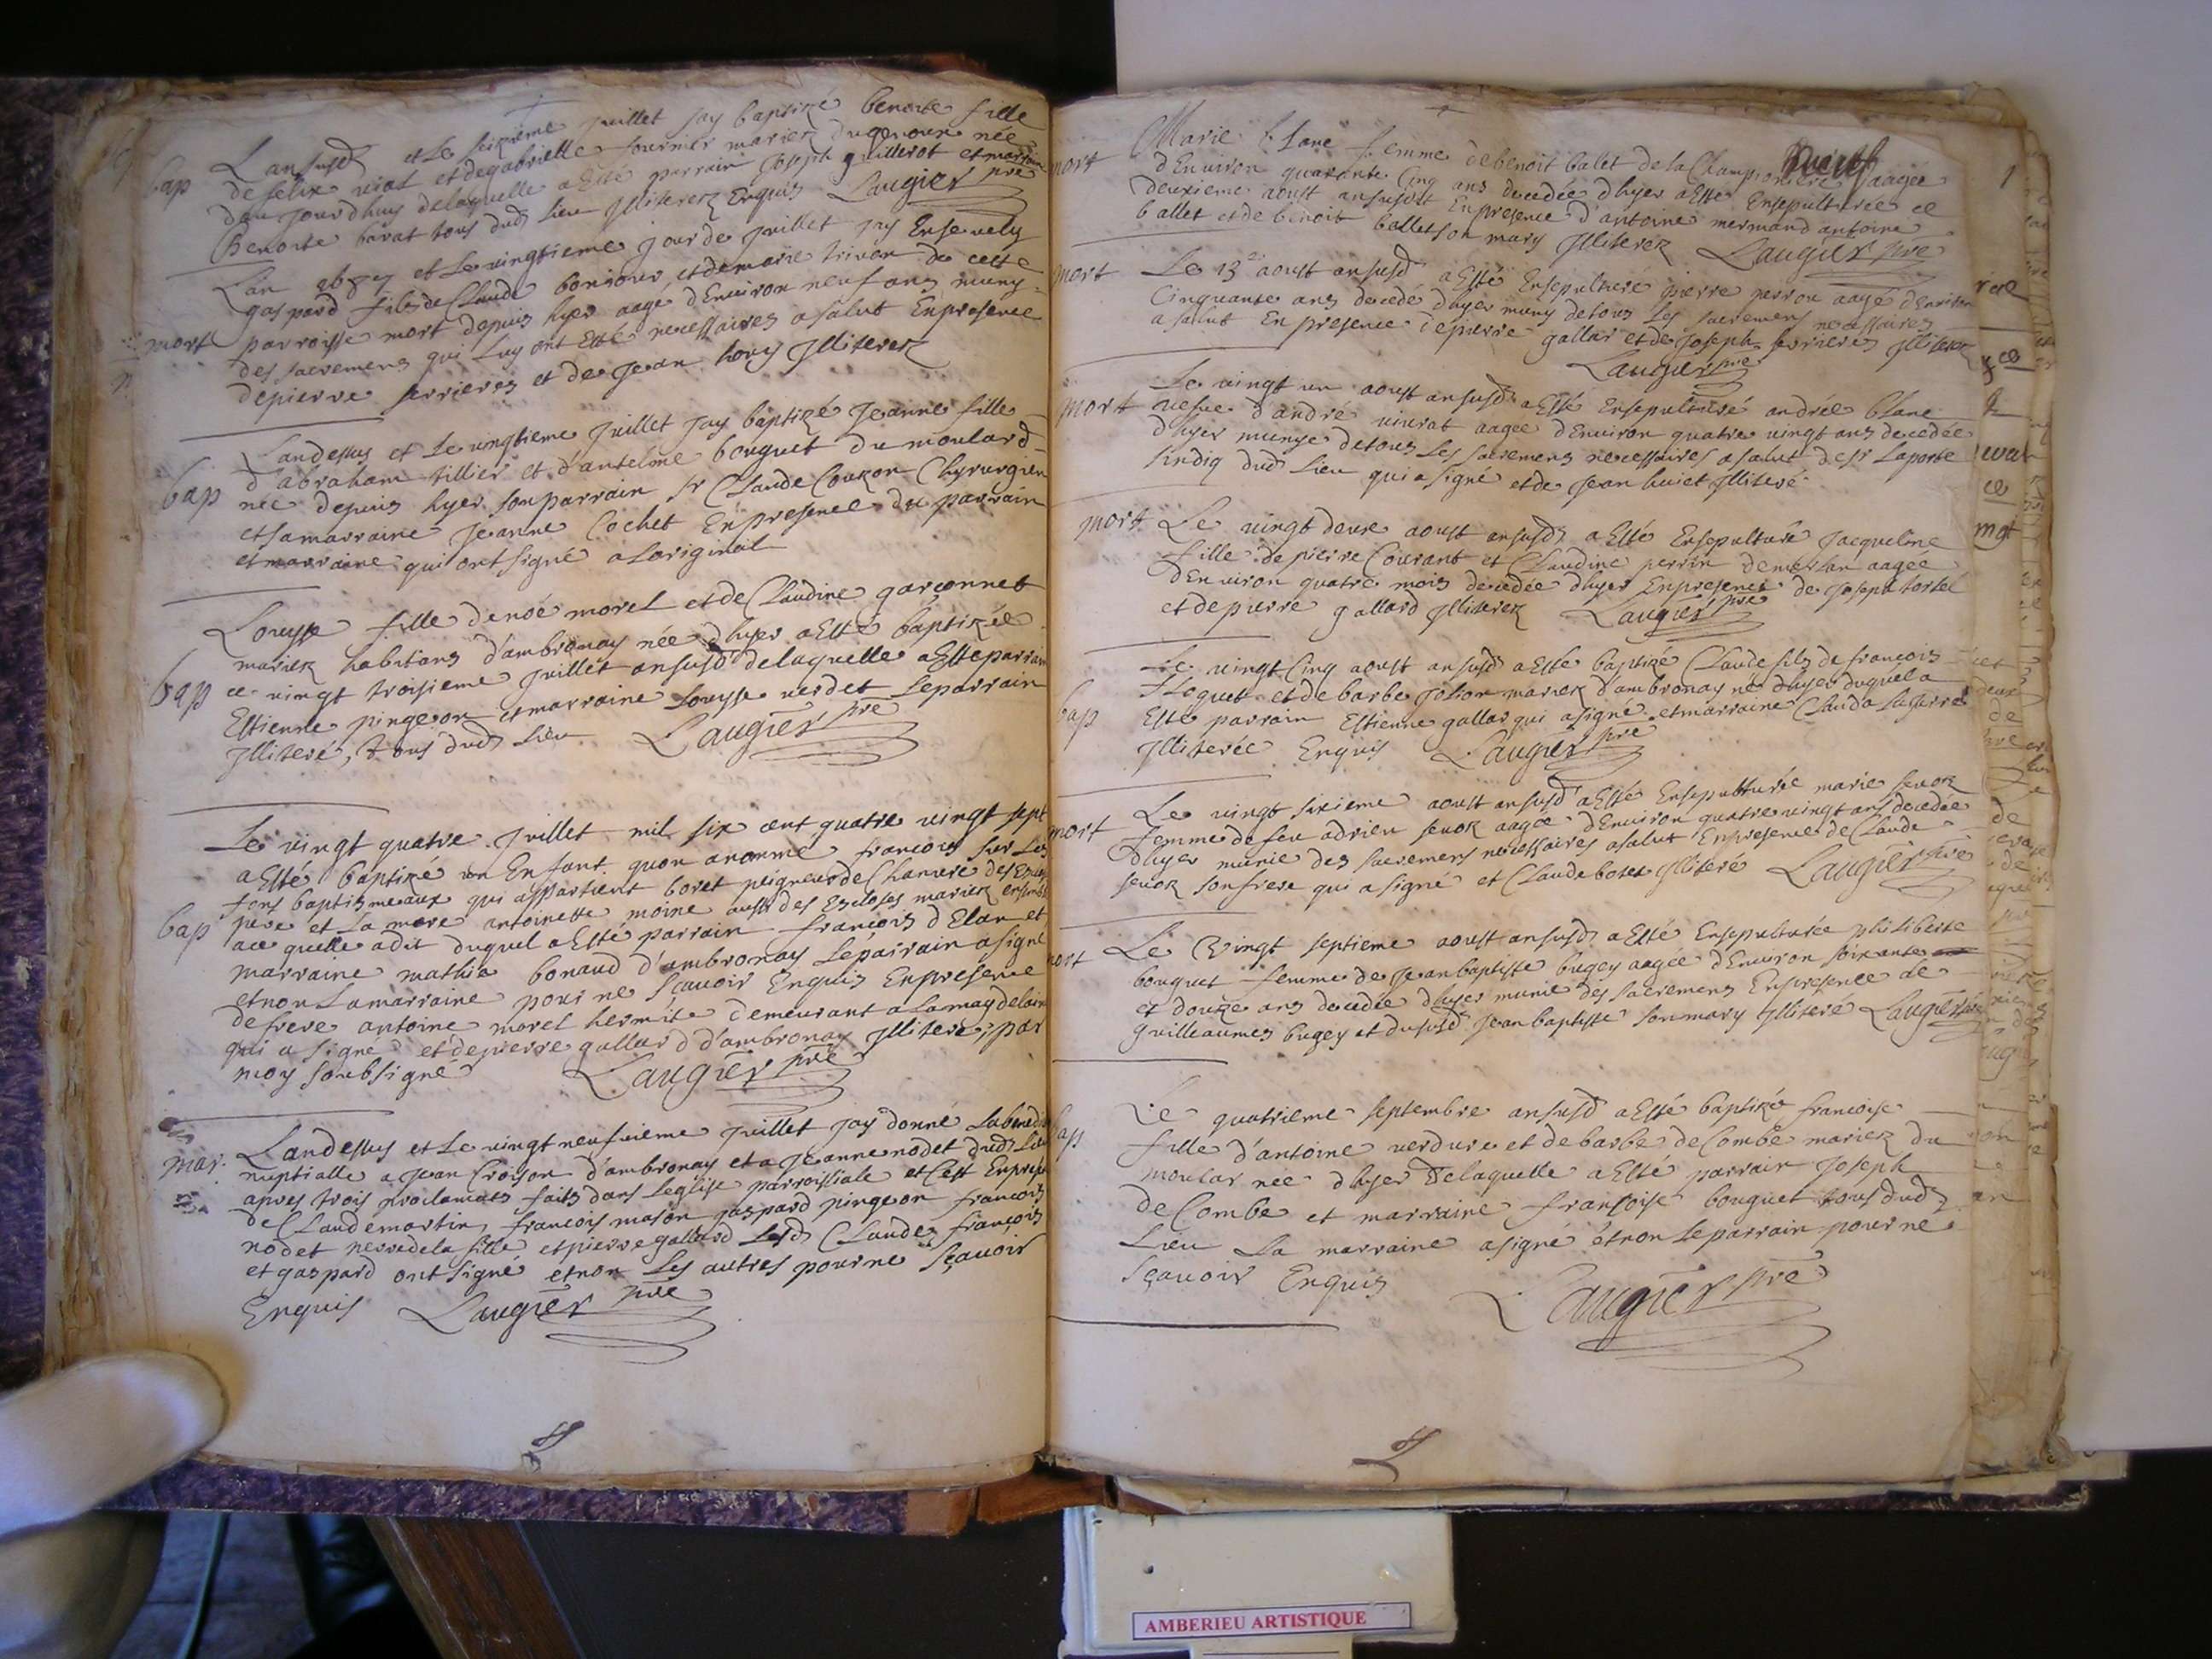 bap
L'an susd et le seizieme juillet jay baptizé benoite fille
de felix vial et degabrielle fournier mariez dugenoux née
dau jourdhuy delaquelle a Esté parrain Joseph guillerot et marraine
Benoite barat tous dud lieu Illiterez Enquis Laugier pre
mort
L'an 1687 et le vingtieme jour de juillet jay Ensevely
gaspard fils de Claude bonjour et demarie trivon de cette
parroisse mort depuis hyer aagé d'Environ neuf ans muny
des sacremens qui luy ont Esté necessaires a salut Enpresence
depierre serrieres et de Jean houy Illiterez
bap
Landessus et le vingtieme juillet jay baptizé Jeanne fille
d'abraham tillier et d'antelme bouguet du moulard
née depuis hyer son parrain sr Claude Couzon Chyrurgien
et sa marraine Jeanne Cochet Enpresence du parrain
et marraine qui ont signé a Loriginail
bap
Louysse fille denoé morel et de Claudine garconnet
mariez habitans d'ambronay née dhyer a Esté baptizée
ce vingt troisieme juillet an susd delaquelle a Esté parrain
Estienne pingeon et marraine Louysse verdet le parrain
Illiteré, tous dud lieu Laugier pre
bap
Le vingt quatre juillet mil six cent quatre vingt sept
a Esté baptizé un Enfant quon a nommé francois sur Les
fons baptismeaux qui appartient boret peigneur de Chanvre des Escloses
pere et La mere antoinette moine aussy des Escloses mariez ensemble
ace quelle a dit duquel a Esté parrain françois d'Elan et
marraine mathia bonaud d'ambronay Le parrain a signé
et non La marraine pour ne sçavoir Enquis Enpresence
de frere antoine morel hermite demeurant a Lamaydelain
qui a signé et depierre gallard d'ambronay Illiteré, par
moy soubsigné Laugier pre
mar.
Landessus et Le vingt neufvieme juillet jay donné La bened
nuptialle a Jean Croison d'ambronay et a Jeanne nodet dud Lieu
apres trois proclamats faits dans Leglise parroissiale et Cest Enprese
de Claude martin, francois mason gaspard pingeon francois
nodet pere dela fille et pierre gallard Lesd Claudes francois
et gaspard ont signé et non Les autres pour ne sçavoir
Enquis Laugier pre
mort
Marie blanc femme de benoit balet de la Championiere aagée
d'Environ quarante Cinq ans decedée dhyer a Esté Ensepulturée ce
deuxieme aoust an susdit Enpresence d'antoine mermand antoine
ballet et de benoit ballet son mary Illiterez Laugier pre
mort
Le 13e aoust an susd a Esté Ensepulturé pierre perron aagé d'Environ
Cinquante ans decedé dhyer muny detous Les sacremens necessaires
a salut Enpresence de pierre gallar et de Joseph serrieres Illiterez
Laugier pre
mort
Le vingt un aoust an susd a Esté Ensepulturé andrée blanc
vefve d'andré vivrat aagée d'Environ quatre vingt ans decedée
d'hyer munye detous Les sacremens necessaires a salut de sr Laporte
sindiq dud Lieu qui a signé et de Jean huiet Illiteré
mort
Le vingt deux aoust an susd a Esté Ensepulturé Jacqueline
fille de pierre Courant et Claudine perrin demerlan aagée
d'Environ quatre mois decedée dhyer Enpresence de Joseph tortel
et de pierre gallard Illiterez Laugier pre
bap
Le vingt Cinq aoust an susd a Esté baptizé Claude fils de francois
floquet et de barbe Jolion mariez d'ambronay né dhyer duquel a
Esté parrain Estienne gallar qui a signé et marraine Clauda Laserre
Illiterée Enquis Laugier pre
mort
Le vingt sixieme aoust an susd a Esté Ensepulturée marie sevoz
femme de feu adrien sevoz aagée d'Environ quatre vingt ans decedée
dhyer munie des sacremens necessaires a salut Enpresence de Claude
sevoz son frere qui a signé et Claude botex Illiteré Laugier pre
mort
Le Vingt septieme aoust an susd a Esté Ensepulturée philiberte
bouguet femme de Jean baptiste bugey aagée d'Environ soixante
et douze ans decedée dhyer munie des sacremens Enpresence de
guilleaumes bugey et dususd Jean baptiste son mary Illiteré Laugier pre
bap
Le quatrieme septembre an susd a Esté baptizé francoise
fille d'antoine verdure et de barbe de Combe mariez du
moular née dhyer Delaquelle a Esté parrain Joseph
de Combe et marraine françoise bouguet tous dud
Lieu La marraine a signé et non Le parrain pour ne
sçavoir Enquis Laugier pre
AMBERIEU ARTISTIQUE